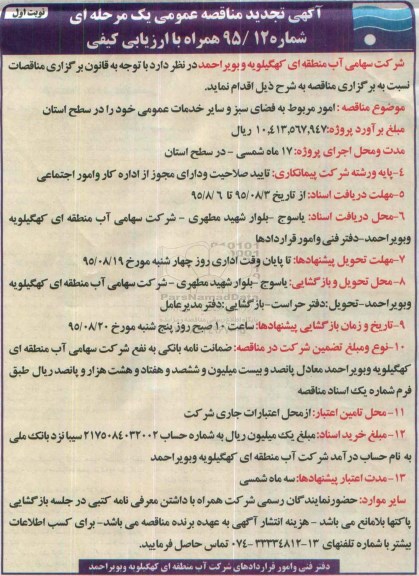 نوبت اول
آگهی تجدید مناقصه عمومی یک مرحله ای
شماره ۹۵/۱۲ همراه با ارزیابی کیفی
شرکت سهامی آب منطقه ای کهگیلویه و بویراحمد در نظر دارد با توجه به قانون برگزاری مناقصات
نسبت به برگزاری مناقصه به شرح ذیل اقدام نماید.
موضوع مناقصه : امور مربوط به فضای سبز و سایر خدمات عمومی خود را در سطح استان
مبلغ برآورد پروژه: ۱۰,۴۱۳,۵۶۷,۹۴۷ ریال
مدت ومحل اجرای پروژه: ۱۷ ماه شمسی - در سطح استان
۴-پایه ورشته شرکت پیمانکاری: تایید صلاحیت ودارای مجوز از اداره کار وامور اجتماعی
۵-مهلت دریافت اسناد: از تاریخ ۹۵/۰۸/۳ تا ۹۵/۸/۶
۶-محل دریافت اسناد: یاسوج -بلوار شهید مطهری - شرکت سهامی آب منطقه ای کهگیلویه
وبویراحمد-دفتر فنی وامور قراردادها
۷-مهلت تحویل پیشنهادها: تا پایان وقت اداری روز چهار شنبه مورخ ۹۵/۰۸/۱۹
۸-محل تحویل و بازگشایی: یاسوج -بلوار شهید مطهری - شرکت سهامی آب منطقه ای کهگیلویه
وبویراحمد-تحویل:دفتر حراست-بازگشایی:دفتر مدیرعامل
۹-تاریخ و زمان بازگشایی پیشنهادها: ساعت ۱۰ صبح روز پنج شنبه مورخ ۹۵/۰۸/۲۰
۱۰-نوع ومبلغ تضمین شرکت در مناقصه: ضمانت نامه بانکی به نفع شرکت سهامی آب منطقه ای
کهگیلویه وبویراحمد معادل پانصد و بیست میلیون و ششصد و هفتاد و هشت هزار و پانصد ریال طبق
فرم شماره یک اسناد مناقصه
۱۱-محل تامین اعتبار: ازمحل اعتبارات جاری شرکت
۱۲-مبلغ خرید اسناد: مبلغ یک میلیون ریال به شماره حساب ۲۱۷۵۰۸۴۰۳۲۰۰۲ سیبا نزد بانک ملی
به نام حساب درآمد شرکت آب منطقه ای کهگیلویه وبویراحمد
۱۳-مدت اعتبار پیشنهادها: سه ماه شمسی
سایر موارد: حضورنمایندگان رسمی شرکت همراه با داشتن معرفی نامه کتبی در جلسه بازگشایی
پاکتها بلامانع می باشد - هزینه انتشار آگهی به عهده برنده مناقصه می باشد- برای کسب اطلاعات
بیشتر با شماره تلفنهای ۱۳-۳۳۳۳۴۸۱۲-۰۷۴ تماس حاصل فرمایید.
دفتر فنی وامور قراردادهای شرکت آب منطقه ای کهگیلویه وبویراحمد